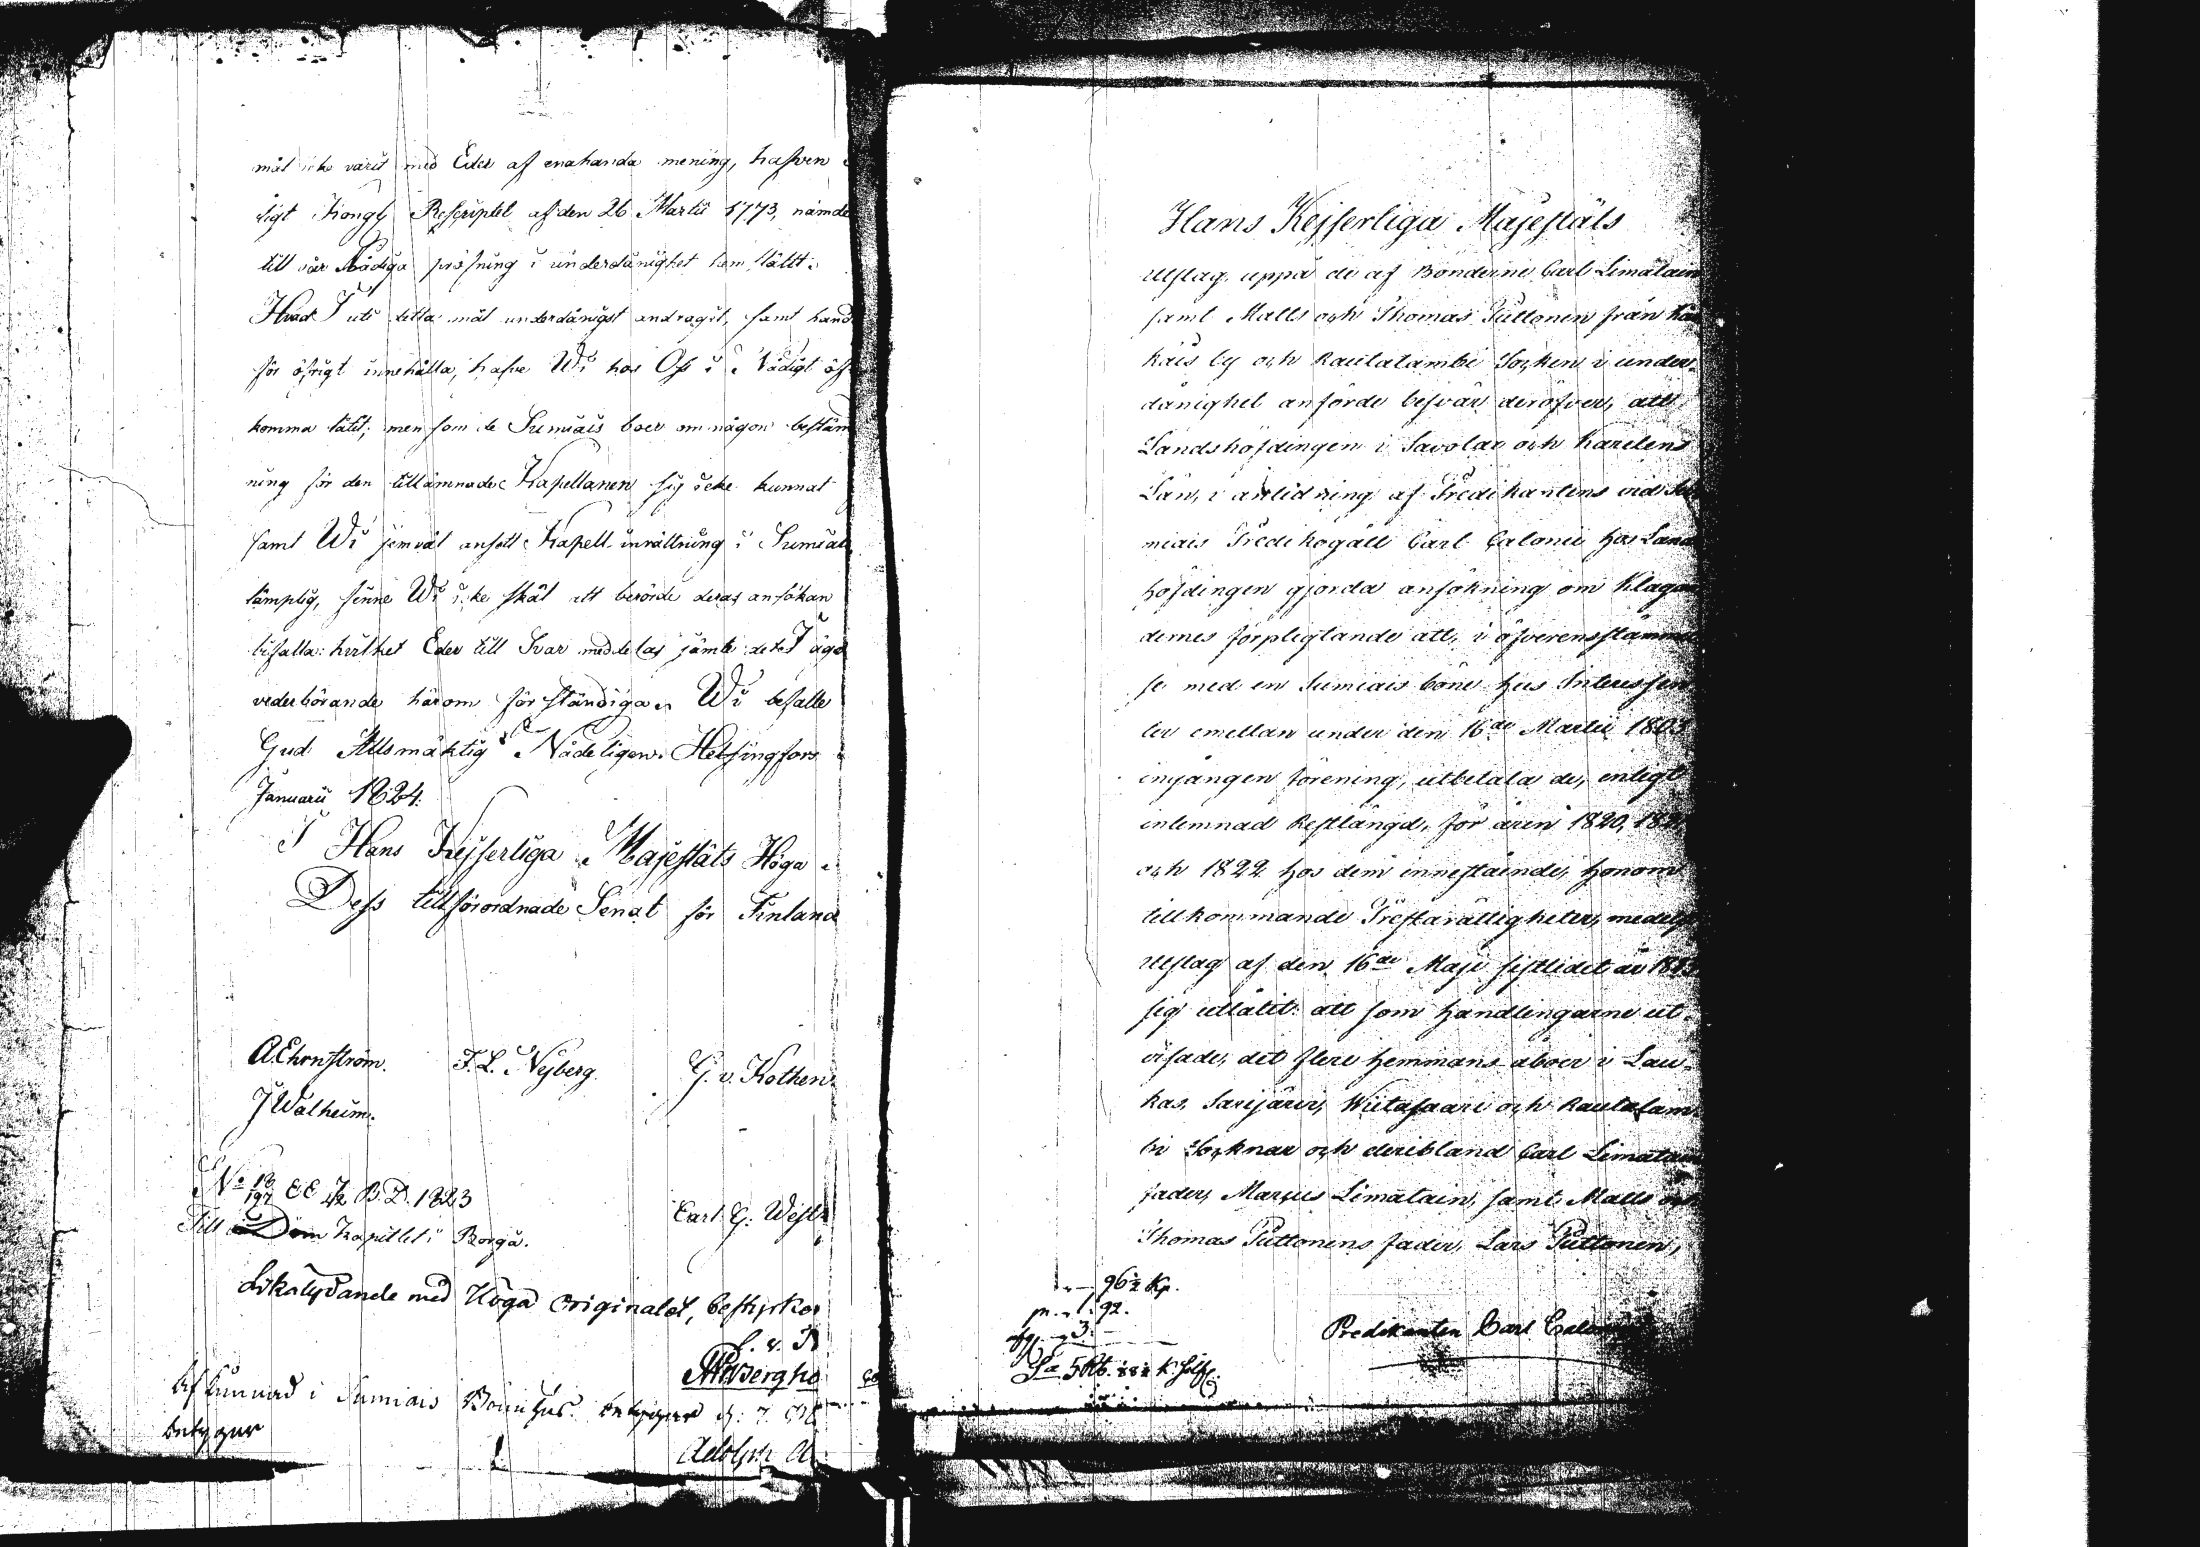 mål icke varit med Eder af enahanda mening, hafven
ligt Kongl. Rescriptet af den 26 Martii 1773, nämde
till vår Nådiga pröfning i underdånighet hemställt.
Hvad I uti detta mål underdånigst andragit, samt hand
för öfrigt innehålla, hafve Wi hos Oss i Nådigt öf
komma låtit; men som de Sumiais boer om någon bestäm
ning för den tillämnade Kapellanen sig icke kunnat
samt Wi jemväl ansett Kapell inrättning i Sumiais
lämplig, finne Wi icke skäl att berörde deras ansökan
bifalla: hvilket Eder till Svar meddelas jämte det I äge
vederbörande härom förständiga. Wi befalle
Gud Allsmäktig Nådeligen. Helsingfors
Januarii 1824.
I Hans Kejserliga Majestäts Höga
Dess tillförordnade Senat för Finland
A Ehrnström. F. L. Nyberg. G. v. Kothen.
J Walheim.
No 18/197 EE 7/42 B. D. 1823
Carl G. West
Till Dom Kapitlet i Borgå.
Likalydande med Höga originalet, bestyrker
Afkunnad i Sumiais Bönehus
betygar
Adolph
Hans Kejserliga Majestäts
Utslag uppå de af Bönderne Carl Limatain
samt Matts och Thomas Puttonen från
kais by och Rautalambi Socken i under-
dånighet anförde besvär deröfver, att
Landshöfdingen i Savolax och Karelens
Län, i anledning af Predikantens vid Su
miais Predikogäll Carl Calonii hos Lands
höfdingen gjorda ansökning om Klagan
dernes förpligtande att, i öfverensstämmel
se med en Sumiais bönehus Interessen
ter emellan under den 16de Martii 1803
ingången förening, utbetala de, enligt
inlemnad Restlängd, för åren 1820, 1821
och 1822 hos dem innestående, honom
tillkommande Prestarättigheter, medelst
Utslag af den 16de Maji sistlidet år 1823
sig utlåtit: att som Handlingarne ut-
visade, det flere Hemmans åboer i Lau-
kas, Sarijärvi, Wiitasaari och Rautalam-
bi Socknar och deribland Carl Limatains
fader, Marcus Limatain, samt Matts och
Thomas Puttonens fader, Lars Puttonen,
96 1/2 Kp.
92.
3.
Predikanten Carl Calon